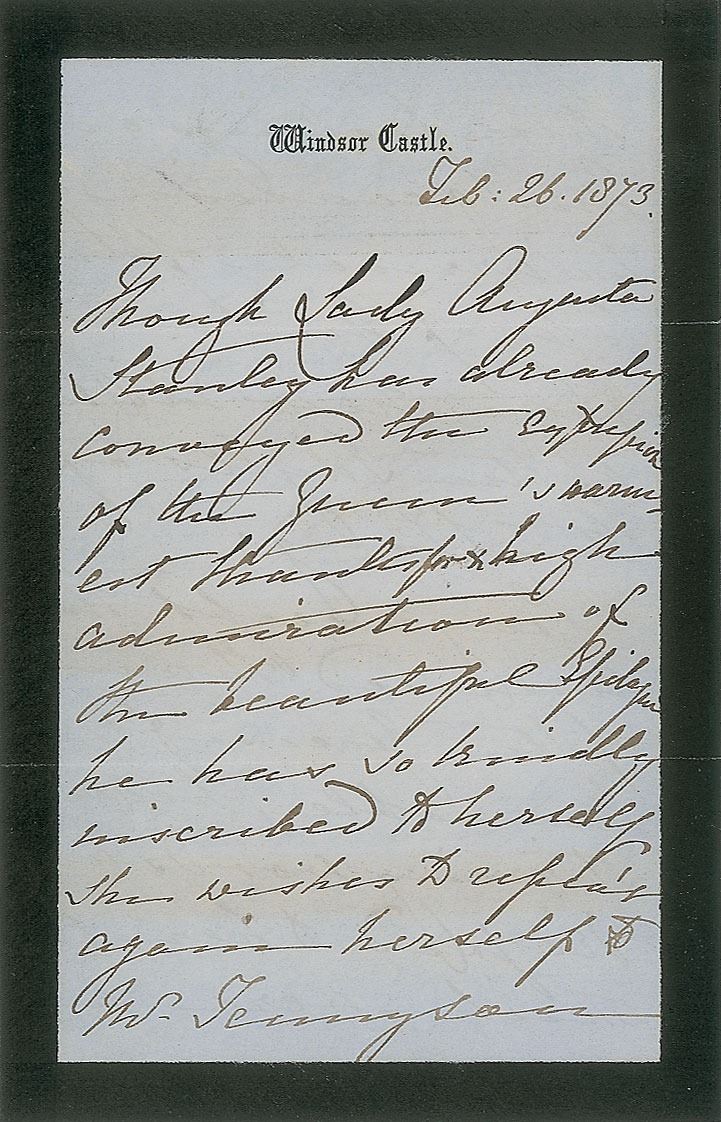 Windsor Castle.
Feb: 26. 1873.
Though Lady Augusta
Stanley has already
conveyed the expression
of the Queen's warm-
est thanks for & high
admiration of
the beautiful Epilogue
he has so kindly
inscribed to herself
she wishes to repeat
again herself to
Mr. Tennyson